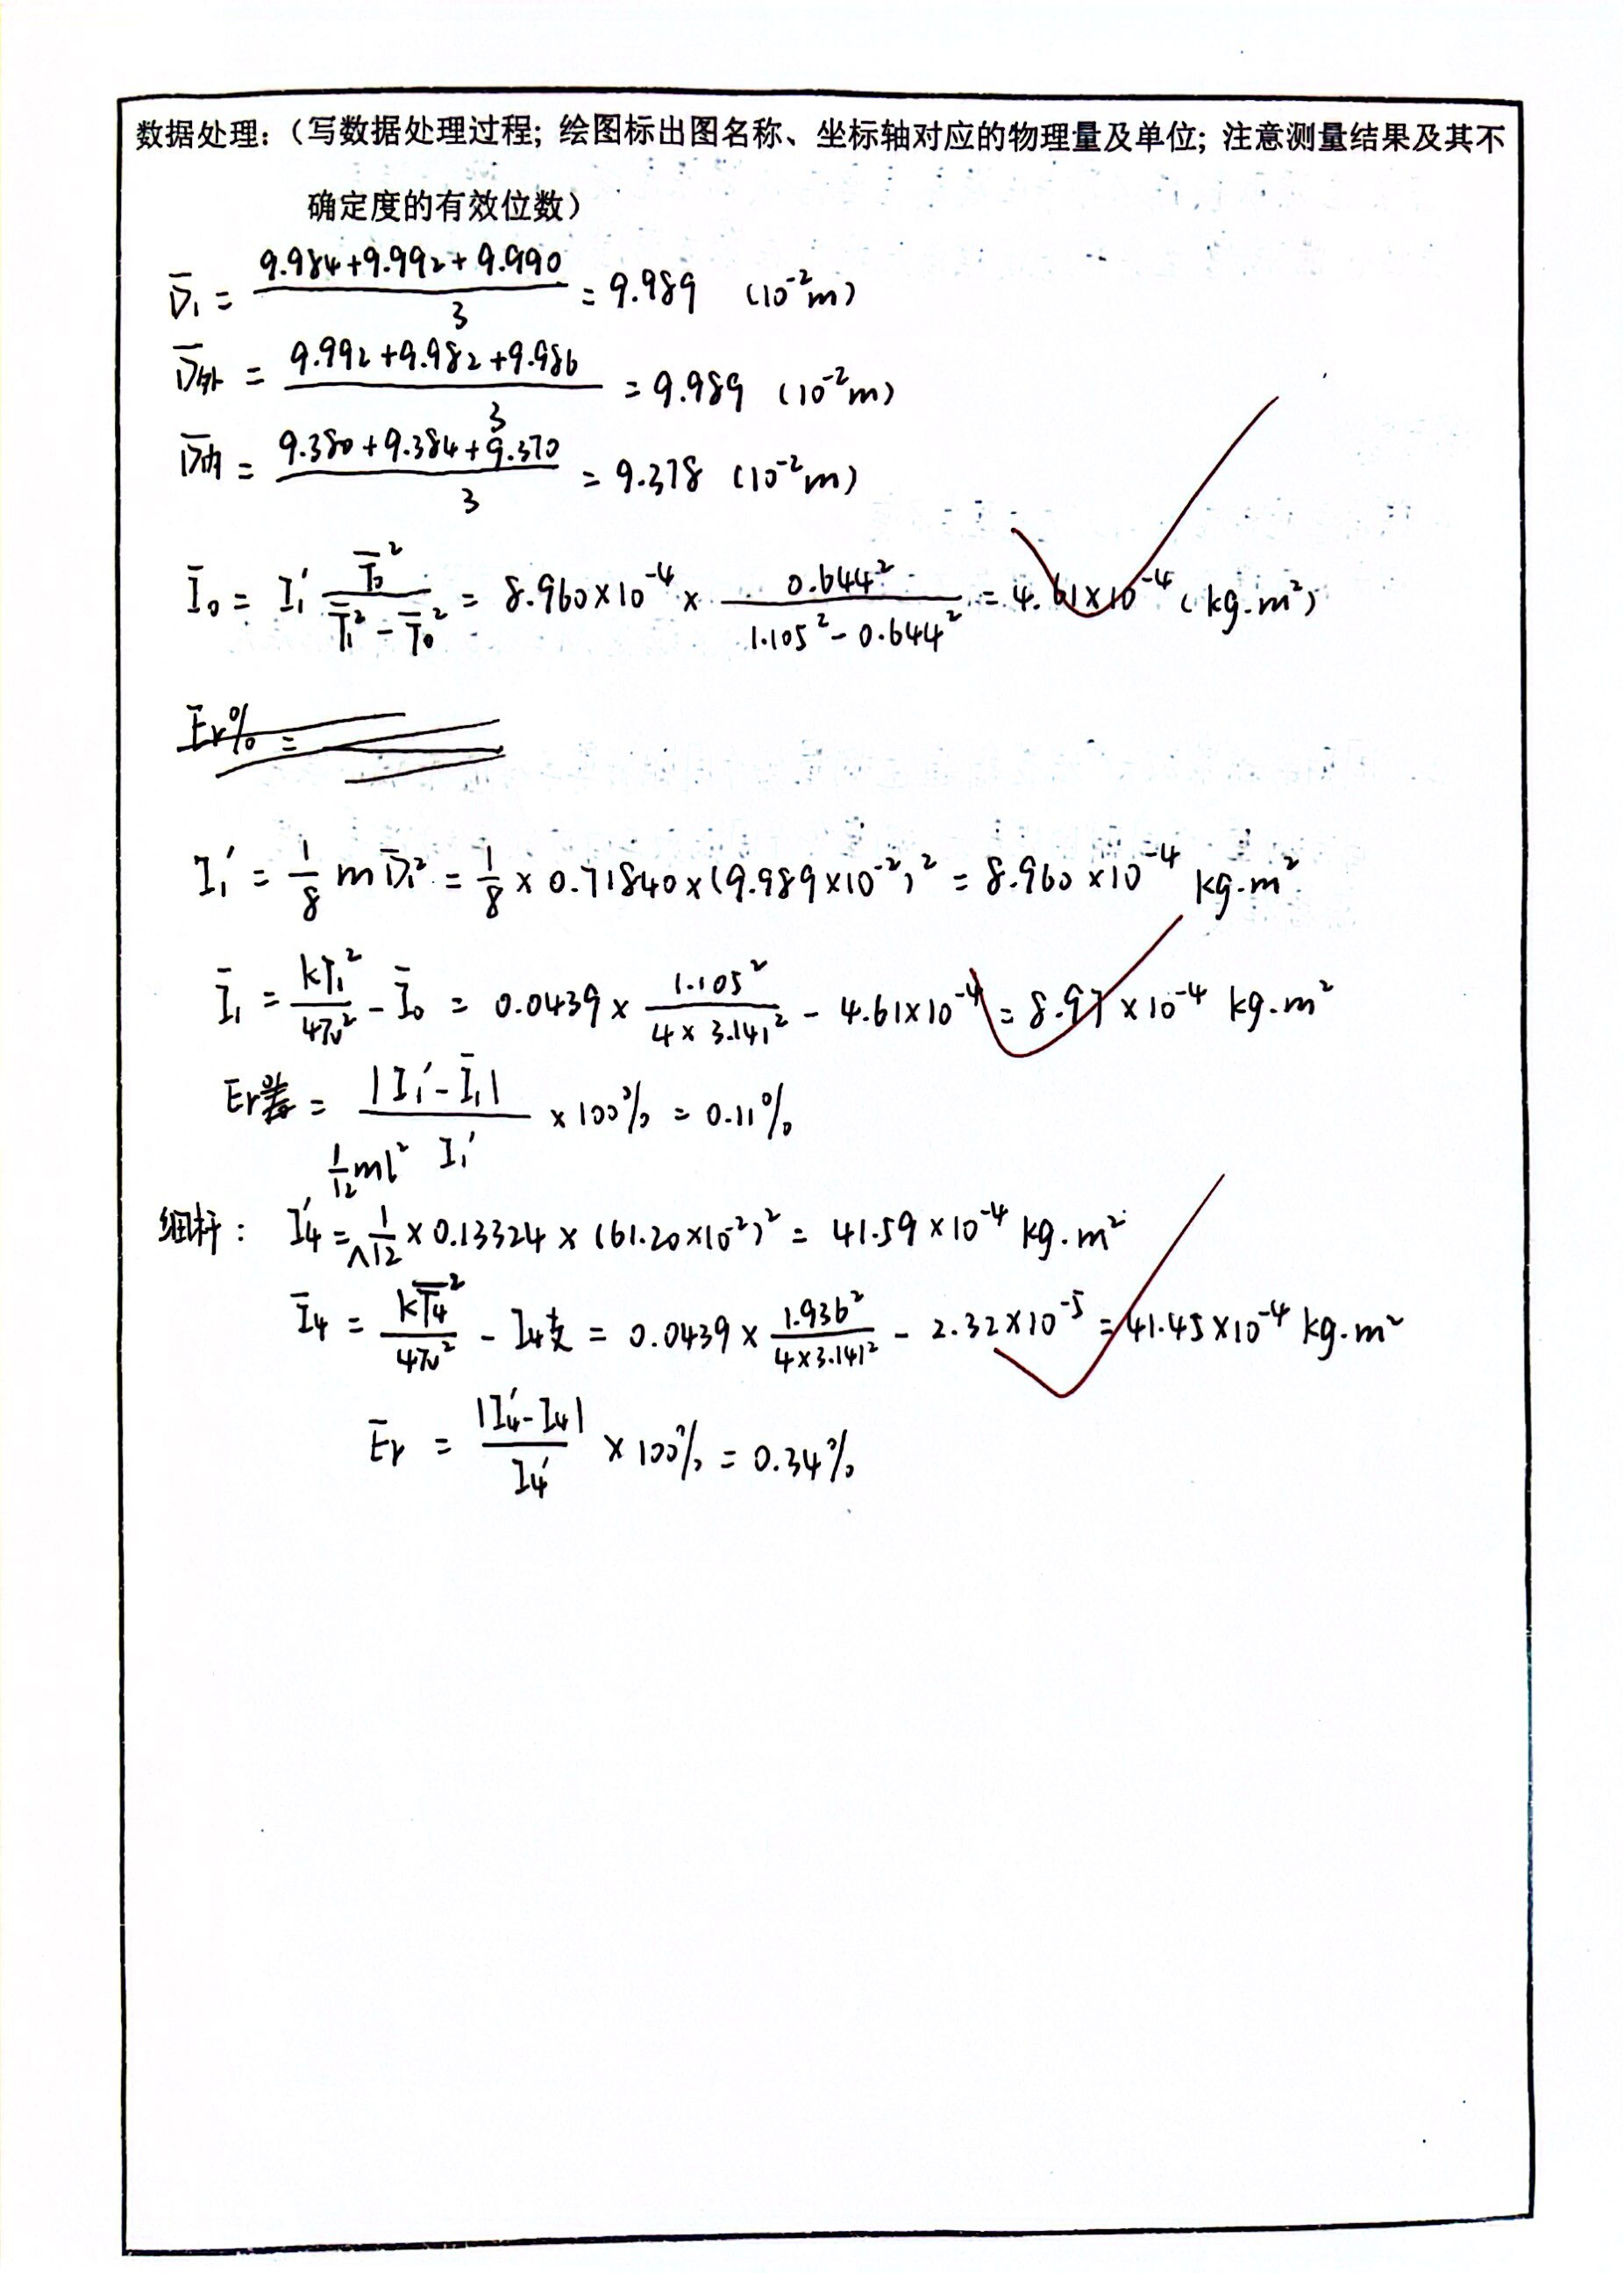 数据处理:(写数据处理过程; 绘图标出图名称、坐标轴对应的物理量及单位; 注意测量结果及其不
确定度的有效位数)
D̄₁ = (9.984+9.992+9.990)/3 = 9.989 (10⁻²m)
D̄外 = (9.992+9.982+9.986)/3 = 9.989 (10⁻²m)
D̄内 = (9.380+9.384+9.370)/3 = 9.378 (10⁻²m)
Ī₀ = I₁′ T̄₀²/(T̄₁²-T̄₀²) = 8.960×10⁻⁴ × 0.644²/(1.105²-0.644²) = 4.61×10⁻⁴ (kg.m²)
Er% =
I₁′ = 1/8 mD̄₁² = 1/8 × 0.71840×(9.989×10⁻²)² = 8.960×10⁻⁴ kg.m²
Ī₁ = kT̄₁²/4π² - Ī₀ = 0.0439 × 1.105²/(4×3.141²) - 4.61×10⁻⁴ = 8.97×10⁻⁴ kg.m²
Er = |I₁′-Ī₁|/I₁′ ×100% = 0.11%
1/12 ml²
细杆: I₄′ = 1/12 × 0.13324 × (61.20×10⁻²)² = 41.59×10⁻⁴ kg.m²
Ī₄ = kT̄₄²/4π² - I₄支 = 0.0439 × 1.936²/(4×3.141²) - 2.32×10⁻⁵ = 41.45×10⁻⁴ kg.m²
Ēr = |I₄′-I₄|/I₄′ ×100% = 0.34%